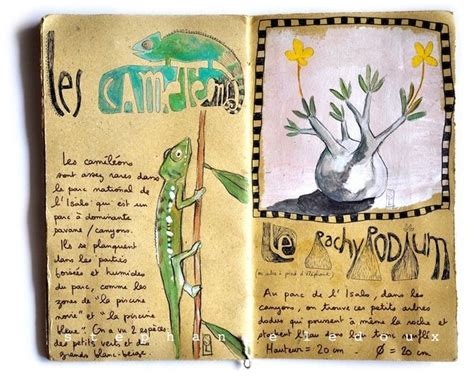 les
caméléons
Les caméléons
sont assez rares dans
le parc national de
l'Isalo qui est un
parc à dominante
savane / canyons.
Ils se planquent
dans les parties
boisées et humides
du parc, comme les
zones de "la piscine
noire" et "la piscine
bleue". On a vu 2 espèces:
des petits verts et des
grands blanc-beige.
Le PachyPODIUM
(ou arbre à pied d'éléphant)
Au parc de l'Isalo, dans les
canyons, on trouve ces petits arbres
dodus qui poussent à même la roche et
stockent l'eau dans leur tronc renflé.
Hauteur = 20 cm - Ø = 20 cm
stephanie ledoux